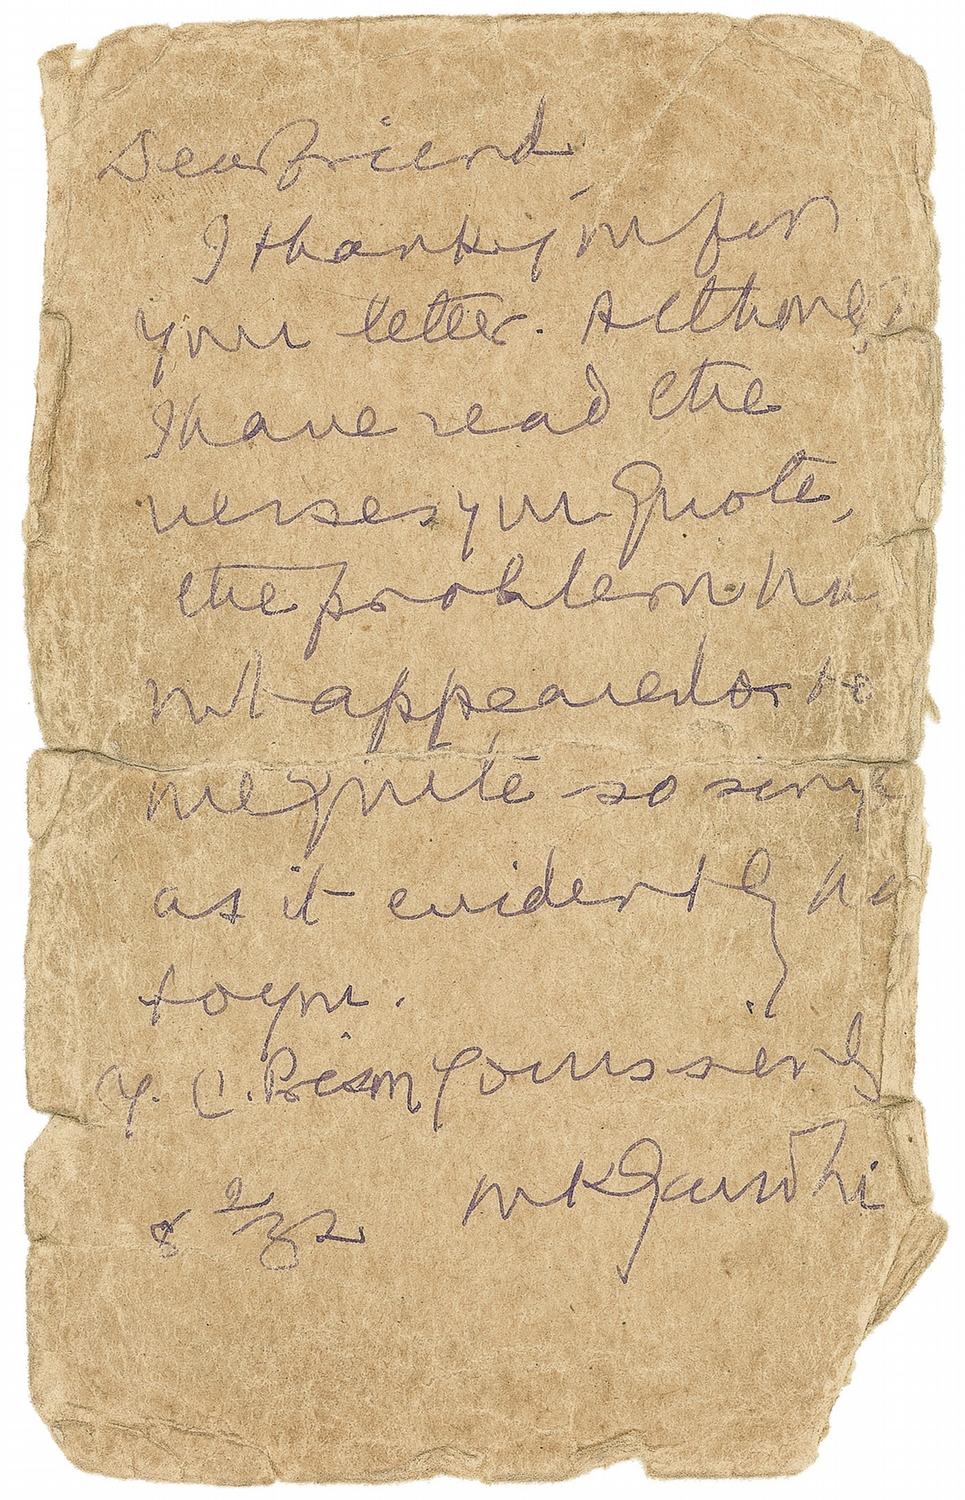 Dear friend,
I thank you for
your letter. Although
I have read the
verses you quote,
the problem has
not appeared to
me quite so simple
as it evidently has
to you.
Y. C. Prism Yours sincerely
8 2/32 MKGandhi